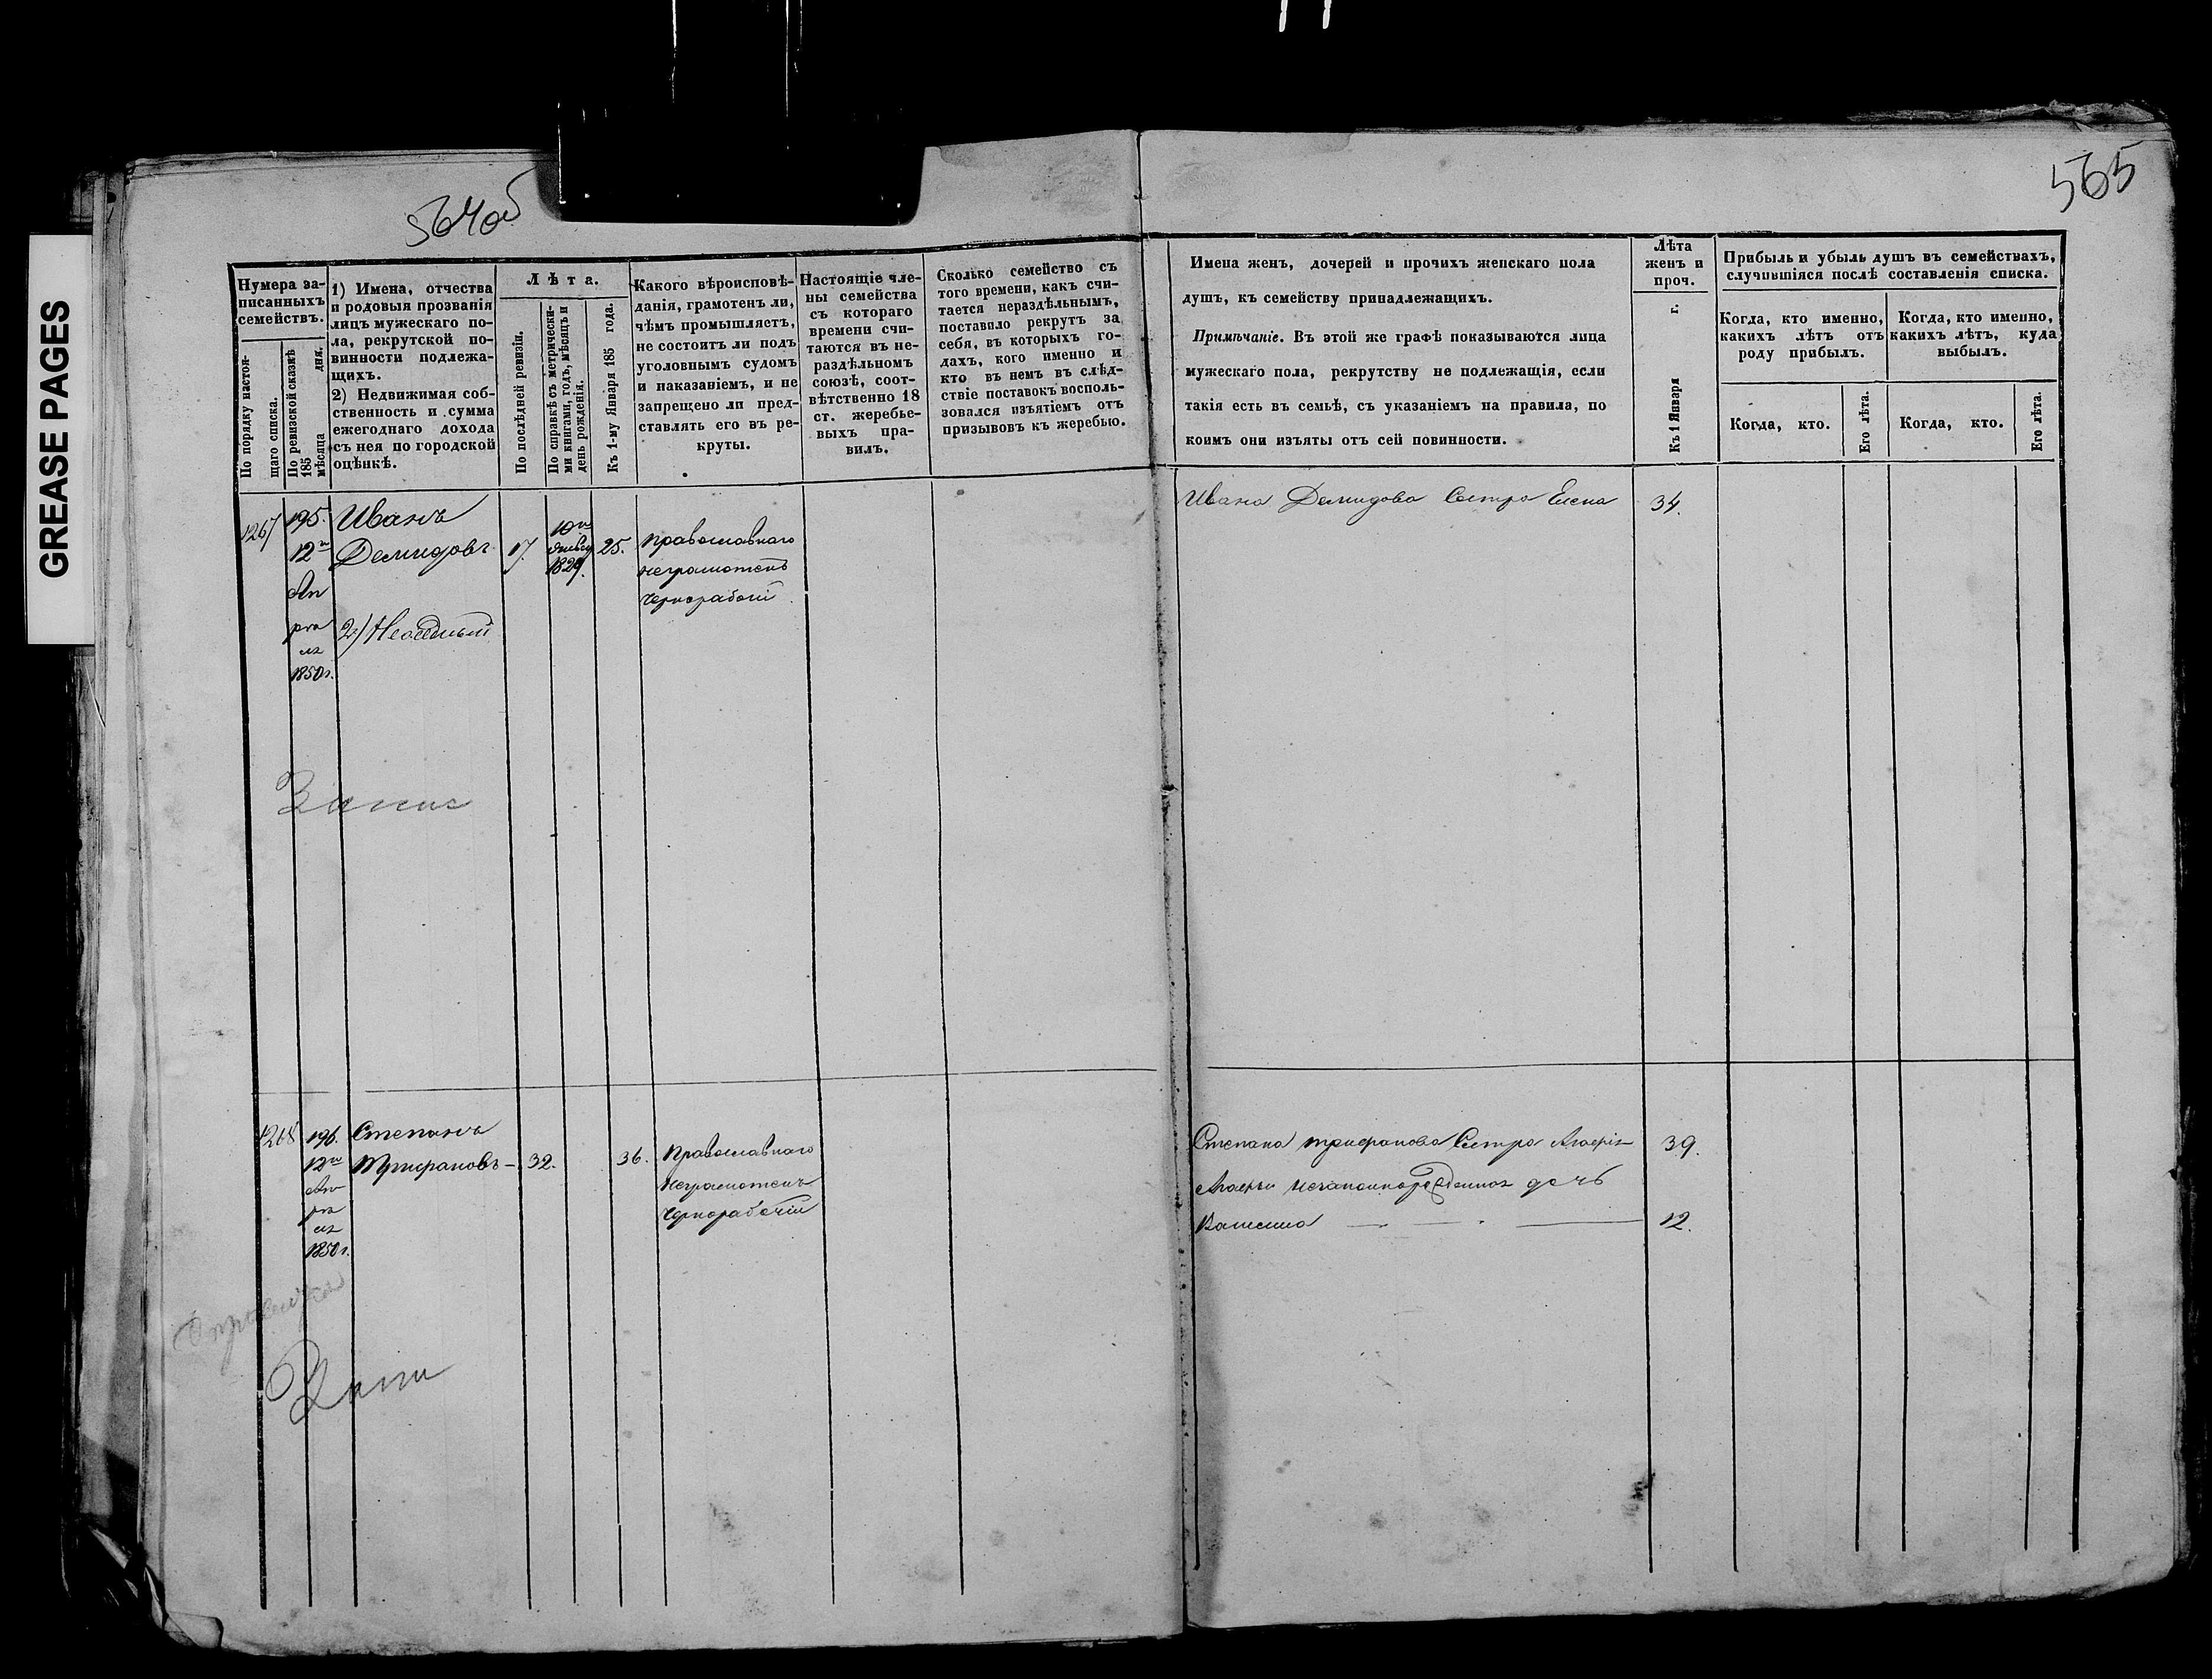 GREASE PAGES
564об
565
Нумера за-
писанныхъ
семействъ.
По порядку настоя-
щаго списка.
По ревизской сказкѣ
185 дня.
мѣсяца
1) Имена, отчества
и родовыя прозванія
лицъ мужескаго по-
ла, рекрутской по-
винности подлежа-
щихъ.
2) Недвижимая соб-
ственность и сумма
ежегоднаго дохода
съ нея по городской
оцѣнкѣ.
Лѣта.
По послѣдней ревизіи.
По справкѣ съ метрически-
ми книгами, годъ, мѣсяцъ и
день рожденія.
Къ 1-му Января 185 года.
Какого вѣроисповѣ-
данія, грамотенъ ли,
чѣмъ промышляетъ,
не состоитъ ли подъ
уголовнымъ судомъ
и наказаніемъ, и не
запрещено ли пред-
ставлять его въ ре-
круты.
Настоящіе чле-
ны семейства
съ котораго
времени счи-
таются въ не-
раздѣльномъ
союзѣ, соот-
вѣтственно 18
ст. жеребье-
выхъ пра-
вилъ.
Сколько семейство съ
того времени, какъ счи-
тается нераздѣльнымъ,
поставило рекрутъ за
себя, въ которыхъ го-
дахъ, кого именно и
кто въ немъ въ слѣд-
ствіе поставокъ восполь-
зовался изъятіемъ отъ
призывовъ къ жеребью.
Имена женъ, дочерей и прочихъ женскаго пола
душъ, къ семейству принадлежащихъ.
Примѣчаніе. Въ этой же графѣ показываются лица
мужескаго пола, рекрутству не подлежащія, если
такія есть въ семьѣ, съ указаніемъ на правила, по
коимъ они изъяты отъ сей повинности.
Лѣта
женъ и
проч.
Къ 1 Января г.
Прибыль и убыль душъ въ семействахъ,
случившіяся послѣ составленія списка.
Когда, кто именно,
какихъ лѣтъ отъ
роду прибылъ.
Когда, кто именно,
какихъ лѣтъ, куда
выбылъ.
Когда, кто.
Его лѣта.
Когда, кто.
Его лѣта.
1267
195.
12го
Ап
рѣ
ля
1850 г.
Иванъ
Демидовъ
2) Неосѣдлый
17.
10го
1829.
25.
Православнаго
неграмотенъ
чернорабочій
Ивана Демидова Сестра Елена
34.
Запис
1268
196.
12го
Ап
рѣ
ля
1850 г.
Степанъ
Трифановъ –
32.
36.
Православнаго
неграмотенъ
чернорабочій
Степана Трифанова Сестра Агафія
39.
Агафьи незаконнорожденная дочь
12.